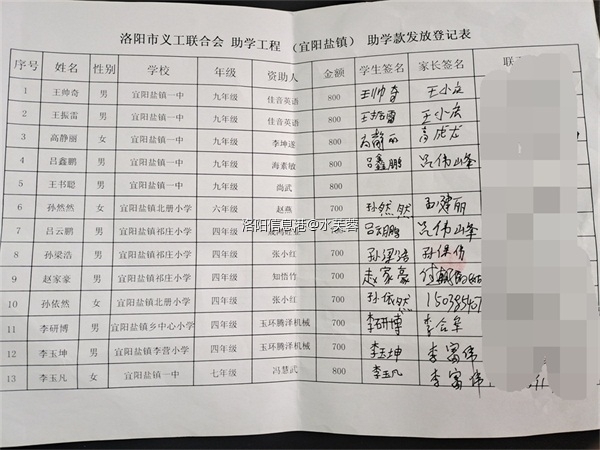 洛阳市义工联合会 助学工程 （宜阳盐镇） 助学款发放登记表
序号 姓名 性别 学校 年级 资助人 金额 学生签名 家长签名 联
1 王帅奇 男 宜阳盐镇一中 九年级 佳音英语 800 王帅奇
2 王振雷 男 宜阳盐镇一中 九年级 佳音英语 800 王振雷
3 高静丽 女 宜阳盐镇一中 九年级 李坤遂 800 高静丽
4 吕鑫鹏 男 宜阳盐镇一中 九年级 海素敏 800 吕鑫鹏 吕伟峰
5 王书聪 男 宜阳盐镇一中 九年级 尚武 800
6 孙然然 女 宜阳盐镇北册小学 六年级 赵燕 700 孙然然
洛阳信息港@水芙蓉
7 吕云鹏 男 宜阳盐镇祁庄小学 四年级 吕云鹏 吕伟峰
8 孙梁浩 男 宜阳盐镇祁庄小学 四年级 张小红 700 孙梁浩 孙保伟
9 赵家豪 男 宜阳盐镇祁庄小学 四年级 知悟竹 700 赵家豪
10 孙依然 女 宜阳盐镇北册小学 四年级 张小红 700 孙依然
11 李研博 男 宜阳盐镇乡中心小学 四年级 玉环腾泽机械 700 李研博
12 李玉坤 男 宜阳盐镇李营小学 四年级 玉环腾泽机械 700 李玉坤 李富伟
13 李玉凡 女 宜阳盐镇一中 七年级 冯慧武 800 李玉凡 李富伟